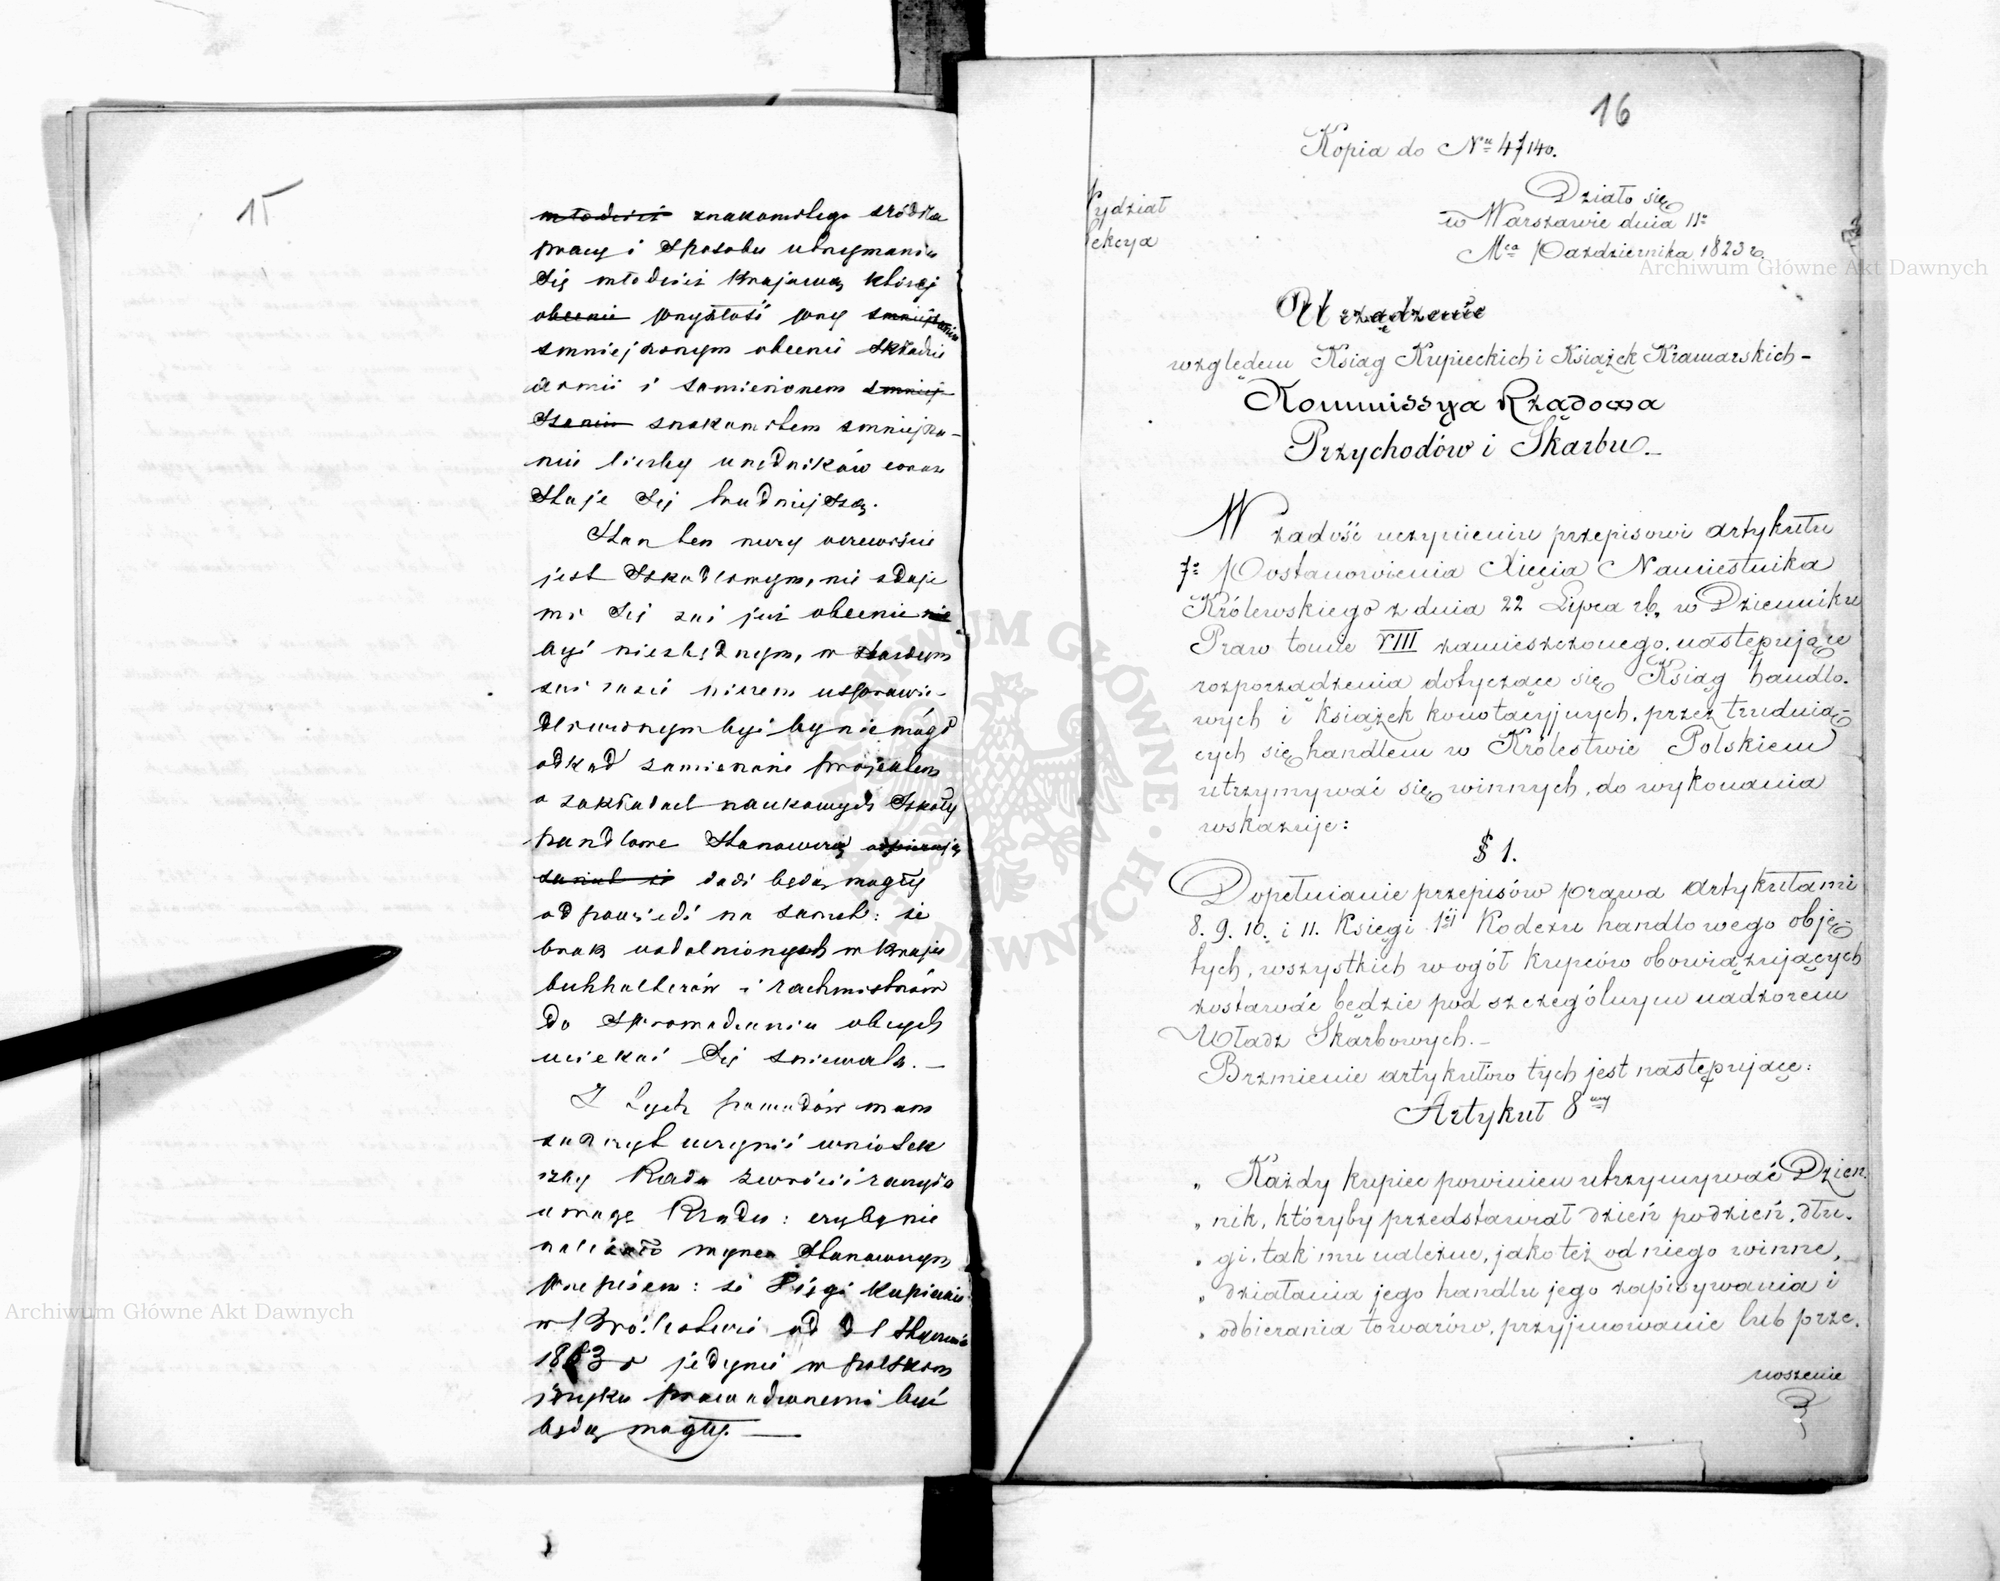 15
młodzieży znakomitego źródła
pracy i sposobu utrzymania
się młodzieży krajowej której
obecnie przyszłość przy
zmniejszonym obecnie składzie
armii i zamierzonem
znakomitem zmniejsze-
niu liczby urzędników coraz
staje się trudniejszą.
Stan ten rzeczy oczewiście
jest szkodliwym, nie zdaje
mi się zaś już obecnie nie
być niezbędnym, w każdym
zaś razie niczem usprawie-
dliwionym być by nie mógł
odkąd zamierzone projektem
o zakładach naukowych szkoły
handlowe stanowczą
dać będą mogły
odpowiedź na zarzut: że
brak uzdolnionych w kraju
buhhalterów i rachmistrzów
do sprowadzania obcych
uciekać się zniewala. —
Z tych powodów mam
zaszczyt uczynić wniosek
iżby Rada zwrócić raczyła
uwagę Rządu: czyby nie
należało wyrzec stanowczym
przepisem: że Księgi kupieckie
w Królestwie od d 1 Stycznia
1863 r jedynie w polskim
języku prowadzonemi być
będą mogły. —
16
Kopia do Nru 47140.
Działo się
w Warszawie dnia 11o
Mca Października 1823 r.
Wydział
Sekcya
Urządzenie
względem Ksiąg Kupieckich i Książek Kramarskich –
Kommissya Rządowa
Przychodów i Skarbu. –
W zadość uczynieniu przepisowi artykułu
7o Postanowienia Xięcia Namiestnika
Królewskiego z dnia 22 Lipca rb. w Dzienniku
Praw tomie VIII zamieszczonego, następujące
rozporządzenia dotyczące się Ksiąg handlo-
wych i książek konotacyjnych, przez trudnią-
cych się handlem w Królestwie Polskiem
utrzymywać się winnych, do wykonania
wskazuje:
§ 1.
Dopełnianie przepisów prawa artykułami
8. 9. 10. i 11. Księgi 1éj Kodexu handlowego obję-
tych, wszystkich w ogół kupców obowiązujących
zostawać będzie pod szczególnym nadzorem
Władz Skarbowych. –
Brzmienie artykułów tych jest następujące:
Artykuł 8my
„ Każdy kupiec powinien utrzymywać Dzien-
„ nik, któryby przedstawiał dzień podzień, dłu-
„ gi, tak mu należne, jako też od niego winne,
„ działania jego handlu jego zapisywania i
„ odbierania towarów, przyjmowanie lub prze-
noszenie
Archiwum Główne Akt Dawnych
Archiwum Główne Akt Dawnych
ARCHIWUM GŁÓWNE · AKT DAWNYCH ·